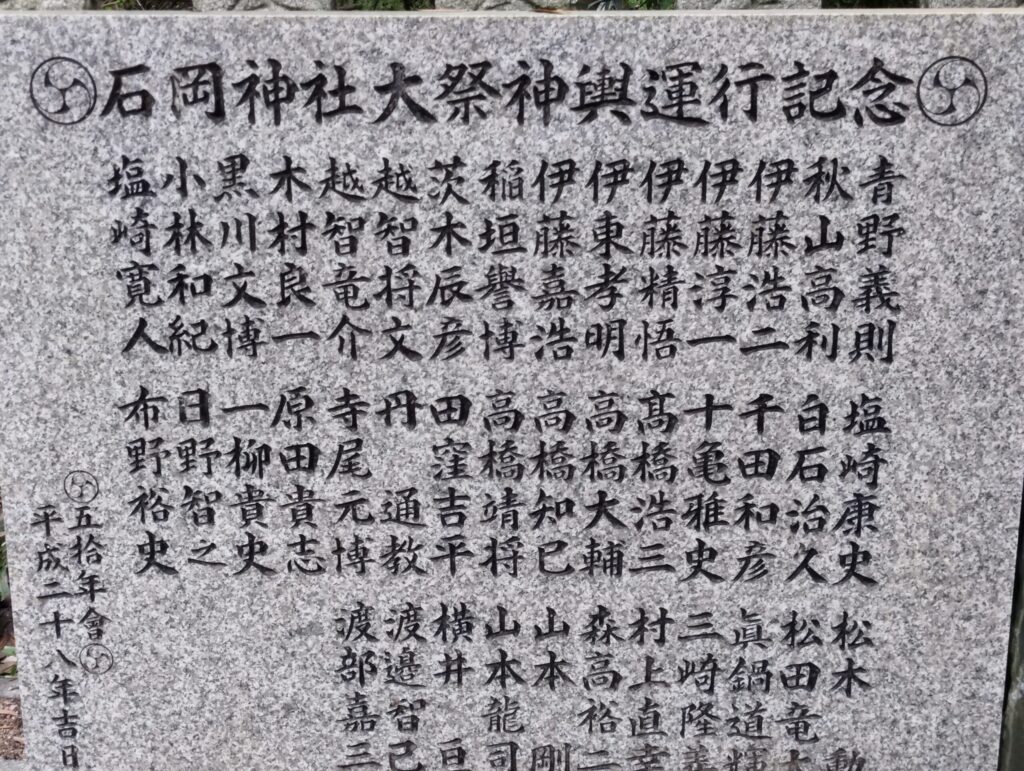 石岡神社大祭神輿運行記念
青野義則
秋山高利
伊藤浩二
伊藤淳一
伊藤精悟
伊東孝明
伊藤嘉浩
稲垣譽博
茨木辰彦
越智将文
越智竜介
木村良一
黒川文博
小林和紀
塩崎寛人
塩崎康史
白石治久
千田和彦
十亀雅史
髙橋浩三
高橋大輔
高橋知巳
高橋靖将
田窪吉平
丹 通教
寺尾元博
原田貴志
一柳貴史
日野智之
布野裕史
松木 勲
松田竜大
眞鍋道輝
三崎隆義
村上直幸
森高裕二
山本 剛
山本龍司
横井 亘
渡邉智己
渡部嘉三
五拾年會
平成二十八年吉日